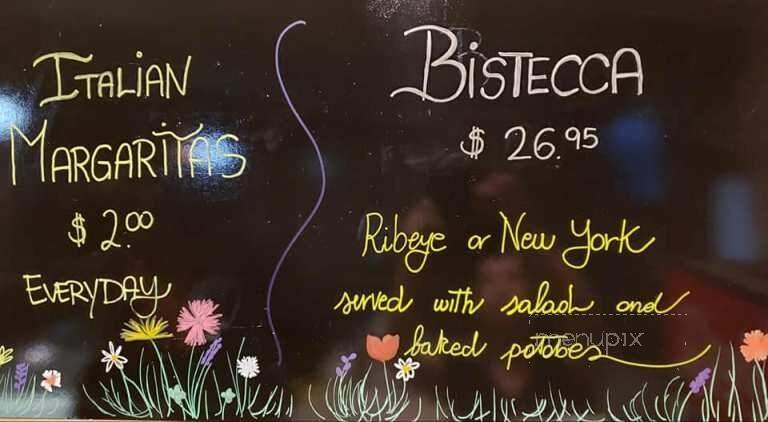 ITALIAN
MARGARITAS
$ 2.00
EVERYDAY
BISTECCA
$ 26.95
Ribeye or New York
served with salad and
baked potatoes
menupix